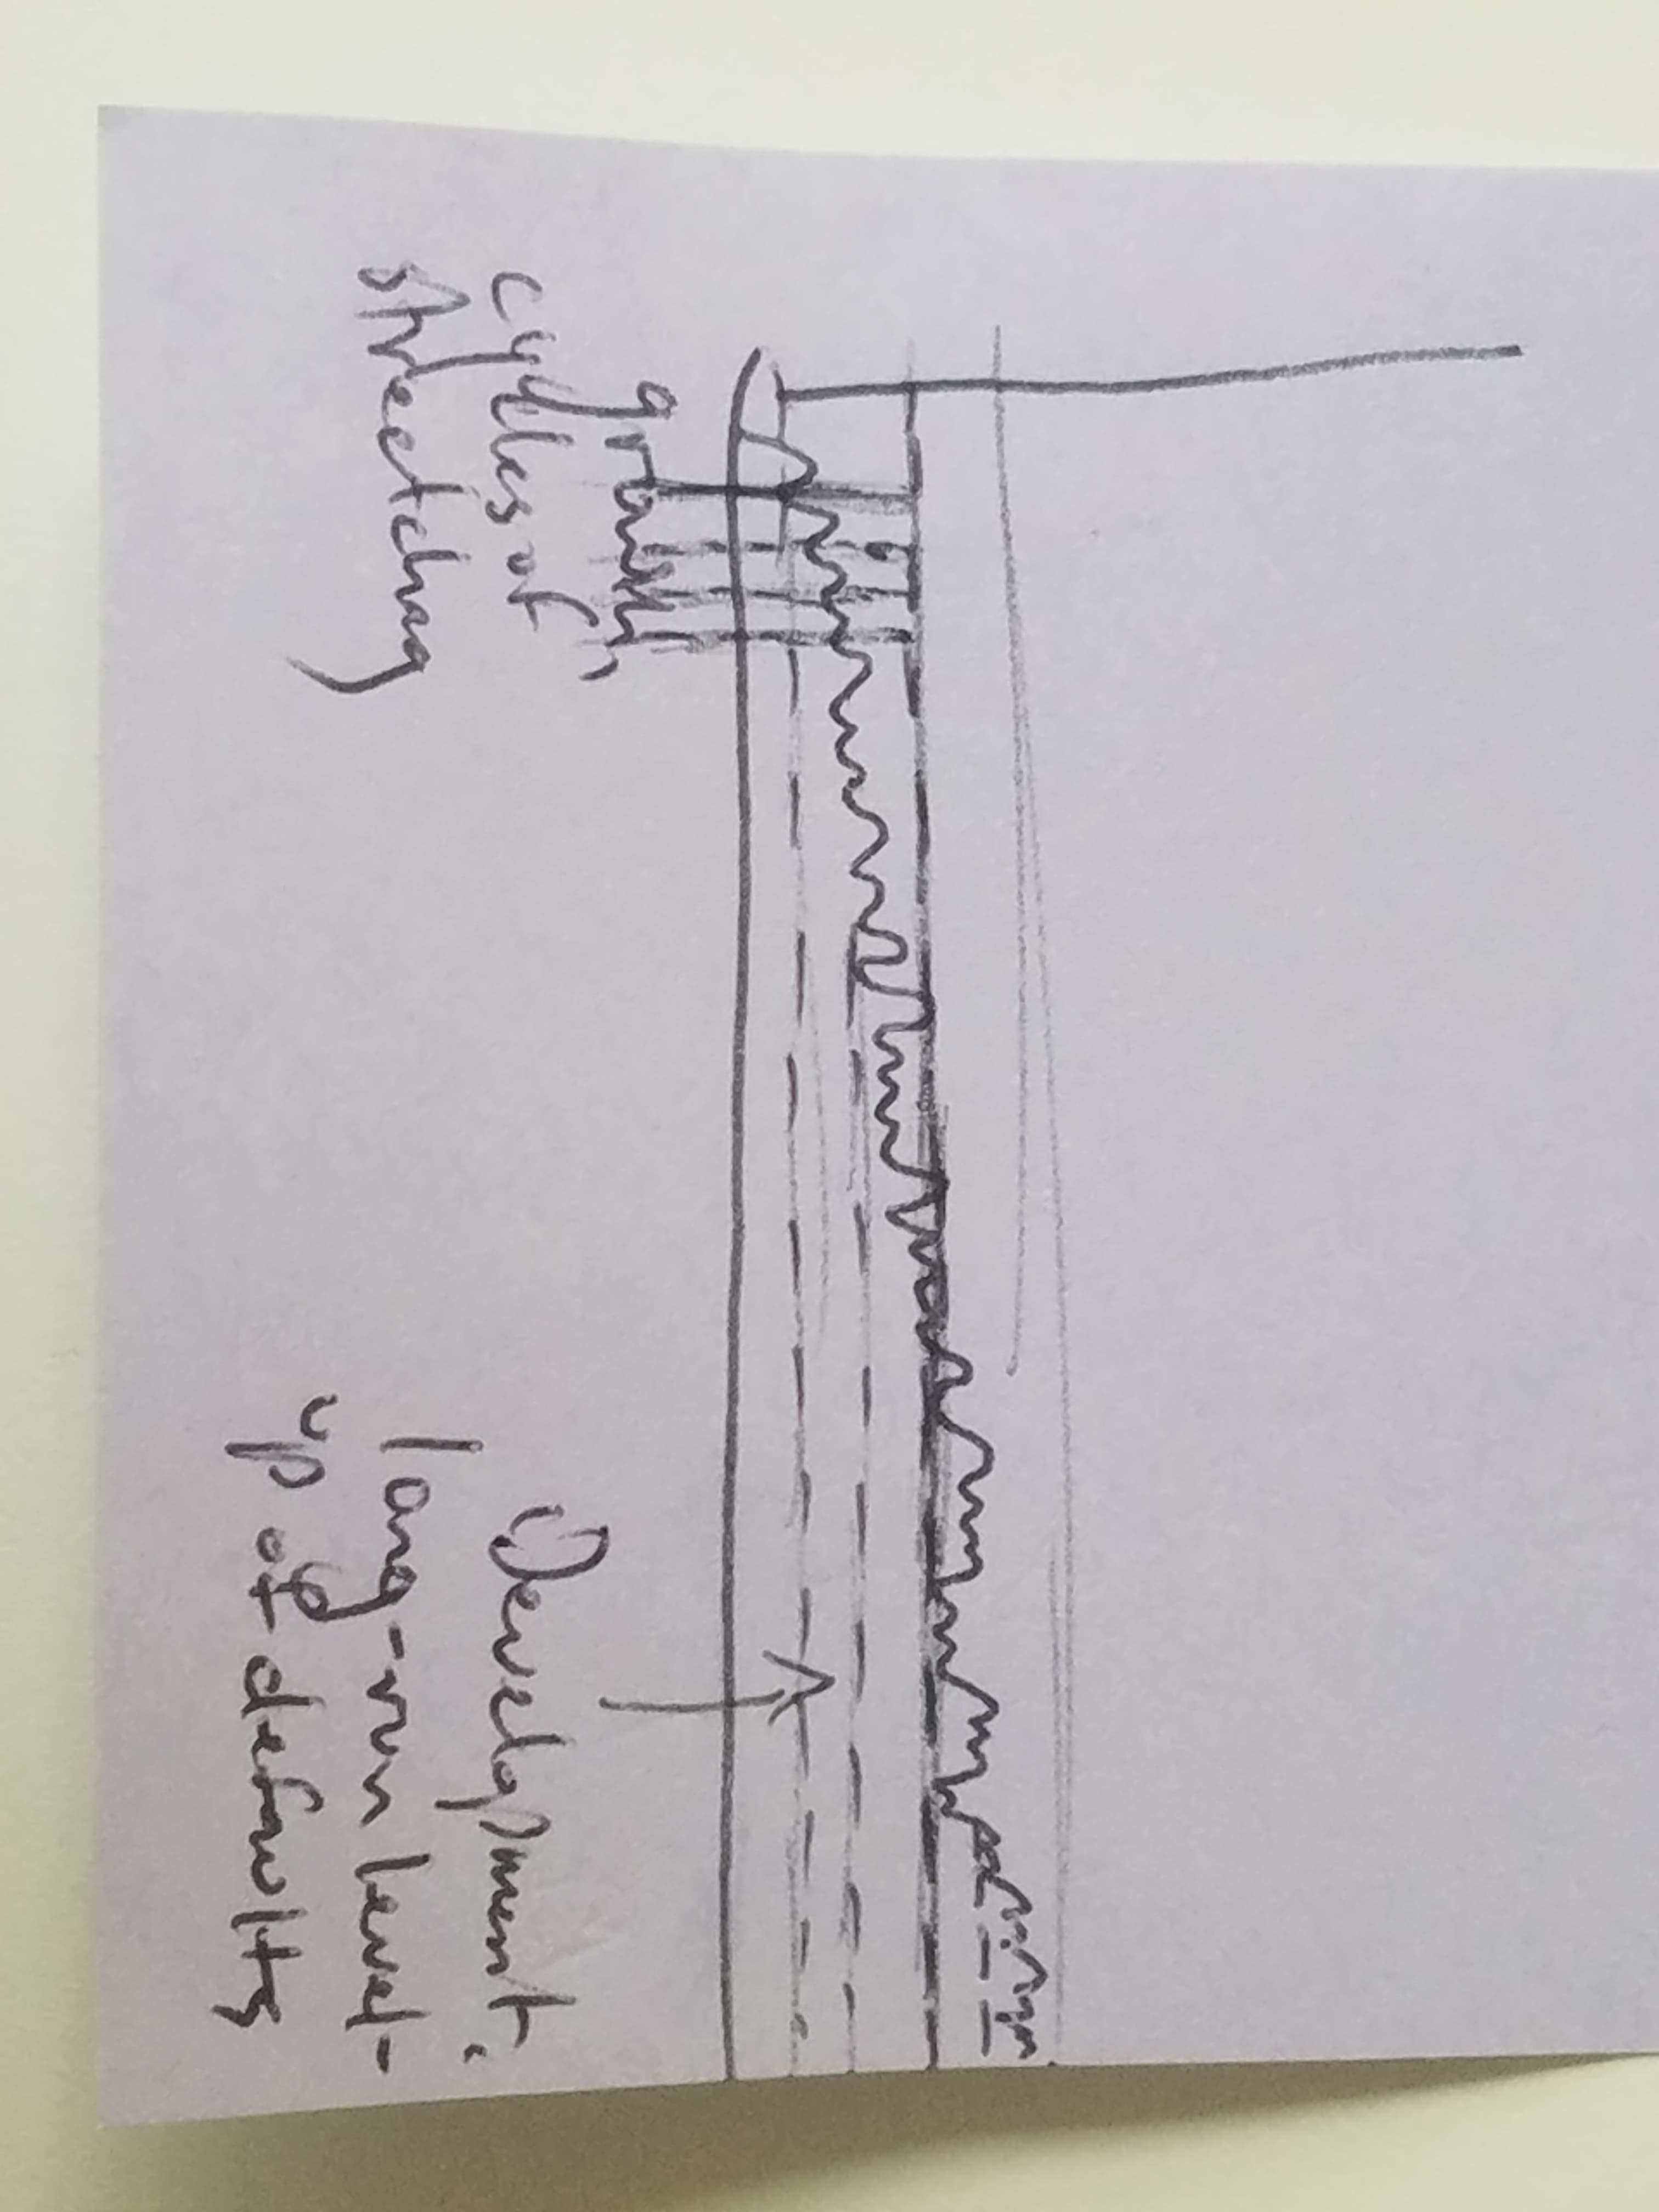 growth,
cycles of
stretching
Development,
long-run level-
up of defaults